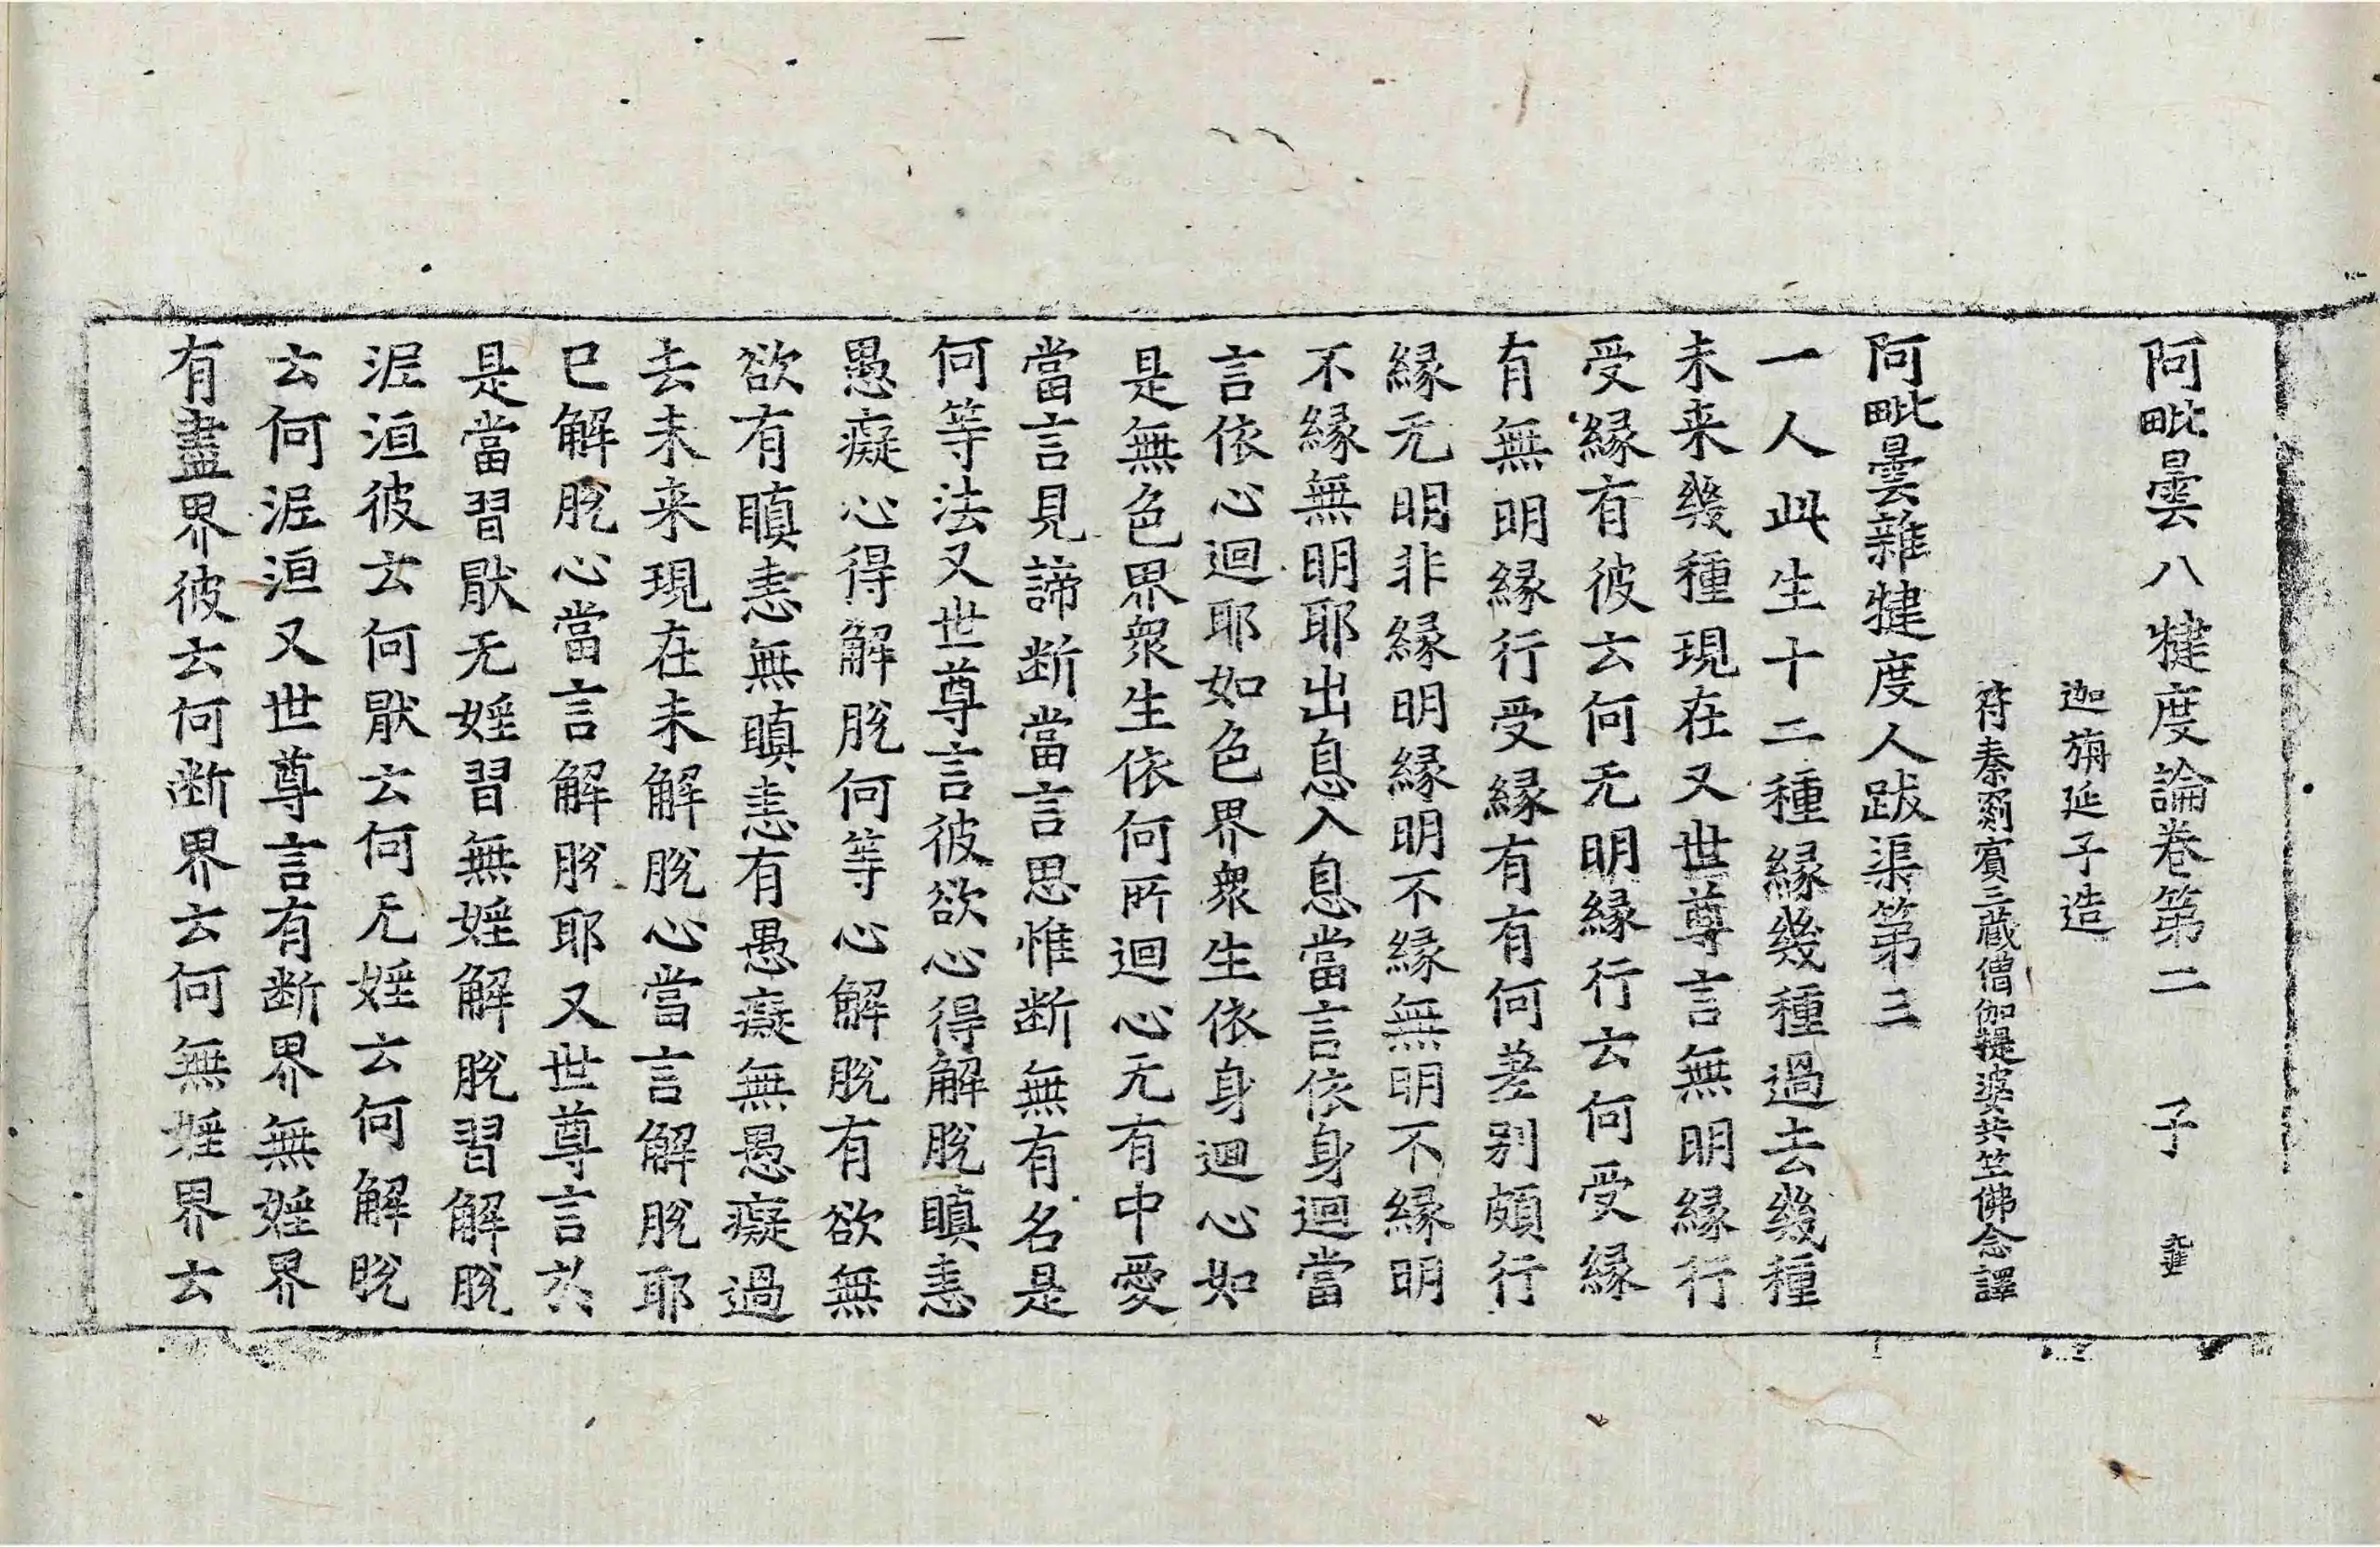 阿毗曇八犍度論卷第二 子
迦旃延子造
符秦罽賓三藏僧伽提婆共竺佛念譯
阿毗曇雜犍度人跋渠第三
一人此生十二種縁幾種過去幾種
未来幾種現在又世尊言無明縁行
受縁有彼云何无明縁行云何受縁
有無明縁行受縁有有何差别頗行
縁无明非縁明縁明不縁無明不縁明
不縁無明耶出息入息當言依身迴當
言依心迴耶如色界衆生依身迴心如
是無色界衆生依何所迴心无有中愛
當言見諦断當言思惟断無有名是
何等法又世尊言彼欲心得解脫瞋恚
愚癡心得解脫何等心解脫有欲無
欲有瞋恚無瞋恚有愚癡無愚癡過
去未来現在未解脫心當言解脫耶
已解脫心當言解脫耶又世尊言於
是當習猒无婬習無婬解脫習解脫
泥洹彼云何猒云何无婬云何解脫
云何泥洹又世尊言有断界無婬界
有盡界彼云何断界云何無婬界云